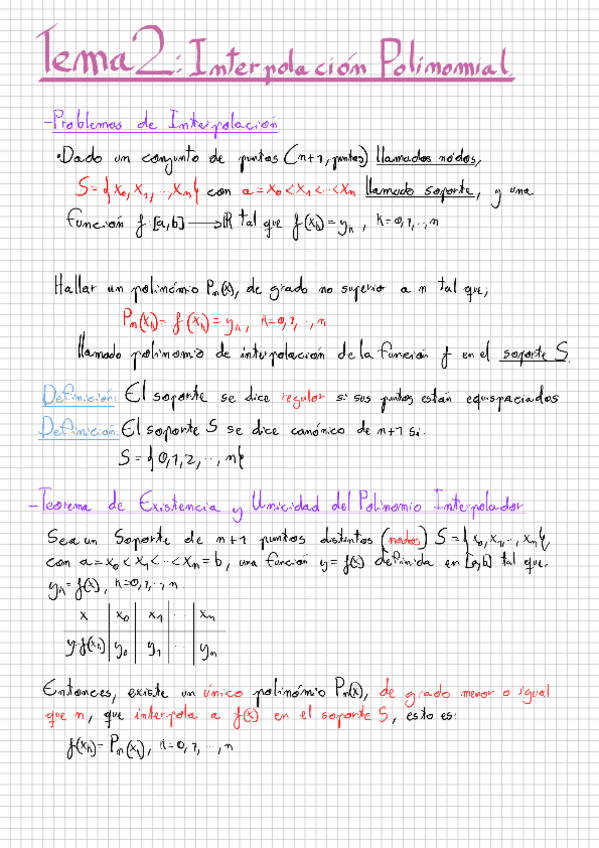 Tema 2: Interpolación Polinomial.
-Problemas de Interpolación
•Dado un conjunto de puntos (n+1, puntos) llamados nodos,
S={x₀, x₁, ..., xₙ} con a=x₀<x₁<...<xₙ llamado soporte, y una
función f:[a,b]→ℝ tal que f(xₖ)=yₖ, k=0,1,..,n
Hallar un polinómio Pₙ(x), de grado no superior a n tal que;
Pₙ(xₖ)=f(xₖ)=yₖ, k=0,1,..,n
llamado polinomio de interpolación de la función f en el soporte S.
Definición: El soporte se dice regular si sus puntos están equispaciados
Definición: El soporte S se dice canónico de n+1 si:
S={0,1,2,..,n}
-Teorema de Existencia y Unicidad del Polinomio Interpolador
Sea un Soporte de n+1 puntos distintos (nodos) S={x₀,x₁,..,xₙ},
con a=x₀<x₁<..<xₙ=b, una función y=f(x) definida en [a,b] tal que.
yₖ=f(x), k=0,1,..,n
x | x₀ | x₁ | .. | xₙ
y=f(xₖ) | y₀ | y₁ | .. | yₙ
Entonces, existe un único polinómio Pₙ(x), de grado menor o igual
que n, que interpola a f(x) en el soporte S, esto es:
f(xₖ)=Pₙ(xₖ), k=0,1,..,n